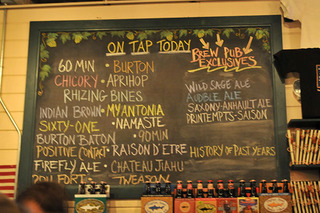 ON TAP TODAY
60 MIN • BURTON
CHICORY • APRIHOP
RHIZING BINES
INDIAN BROWN • MYANTONIA
SIXTY-ONE • NAMASTE
BURTON BATON • 90 MIN
POSITIVE CONTACT • RAISON D'ETRE
FIREFLY ALE • CHATEAU JIAHU
PALO
BREW PUB
EXCLUSIVES
WILD SAGE ALE
AUDIBLE ALE
SAXONY-ANHALT ALE
PRINTEMPS-SAISON
HISTORY OF PAST YEARS